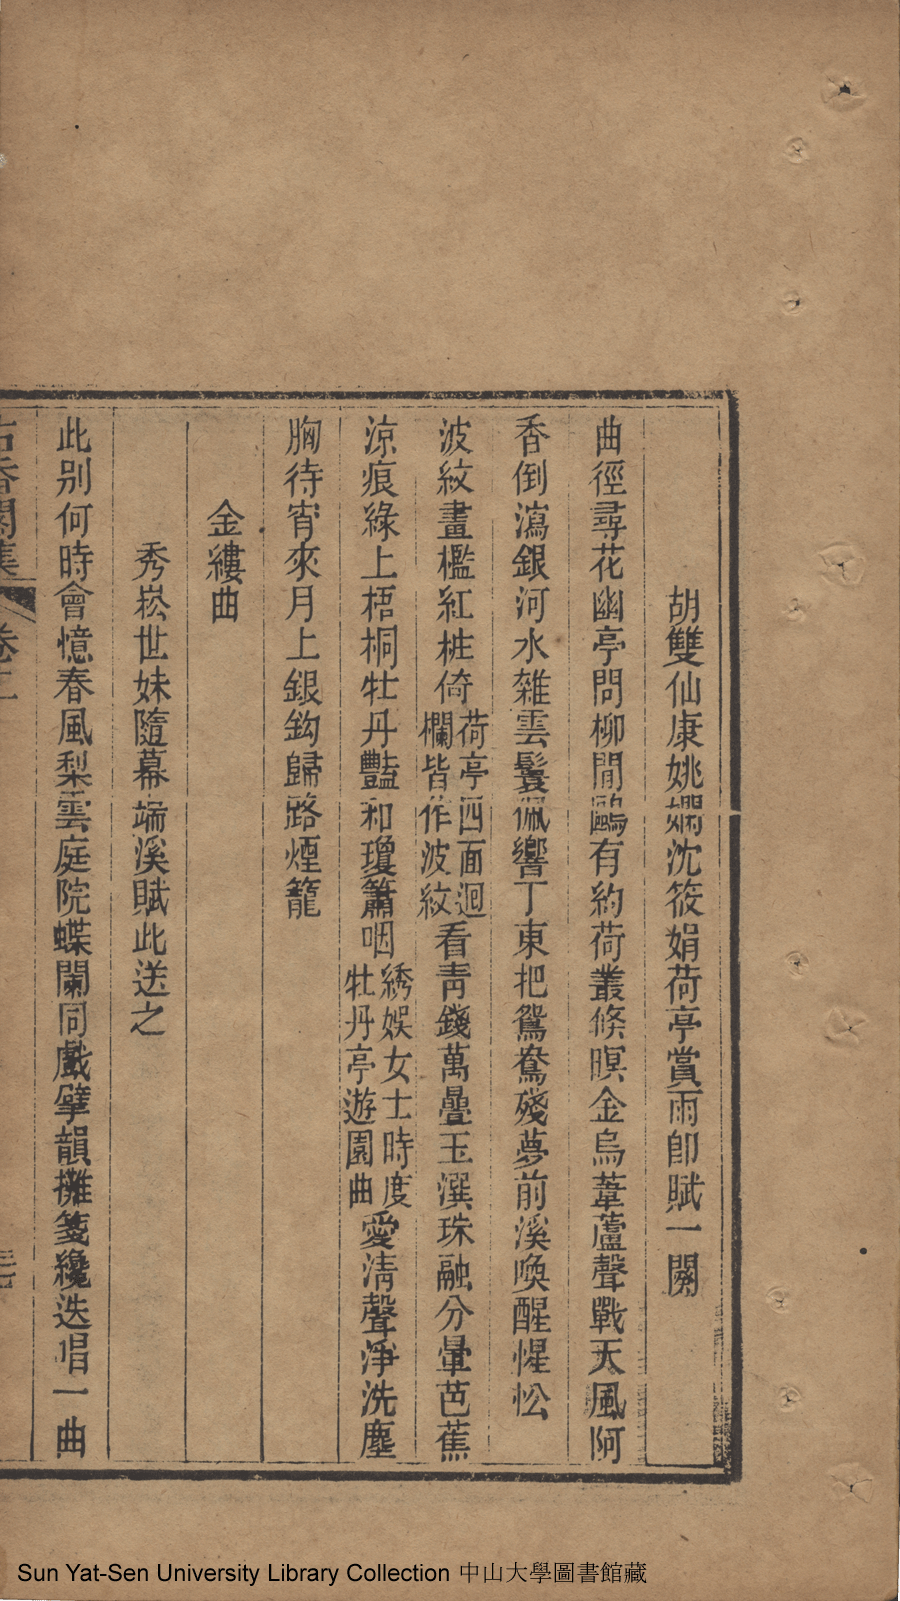 胡雙仙康姚嫻沈筱娟荷亭賞雨卽賦一闋
曲徑尋花幽亭問柳閒鷗有約荷叢倏暝金烏葦蘆聲戰天風阿
香倒瀉銀河水雜雲鬟佩響丁東把鴛鴦殘夢前溪喚醒惺忪
波紋畫檻紅桩倚荷亭四面迴欄皆作波紋看靑錢萬疊玉潠珠融分暈芭蕉
涼痕綠上梧桐牡丹豔和瓊簫咽綉娛女士時度牡丹亭遊園曲愛淸聲淨洗塵
胸待宵來月上銀鈎歸路煙籠
金縷曲
秀崧世妹隨幕端溪賦此送之
此別何時會憶春風梨雲庭院蝶闌同戲擘韻攤箋纔迭唱一曲
古香閣集
卷二
Sun Yat-Sen University Library Collection 中山大學圖書館藏